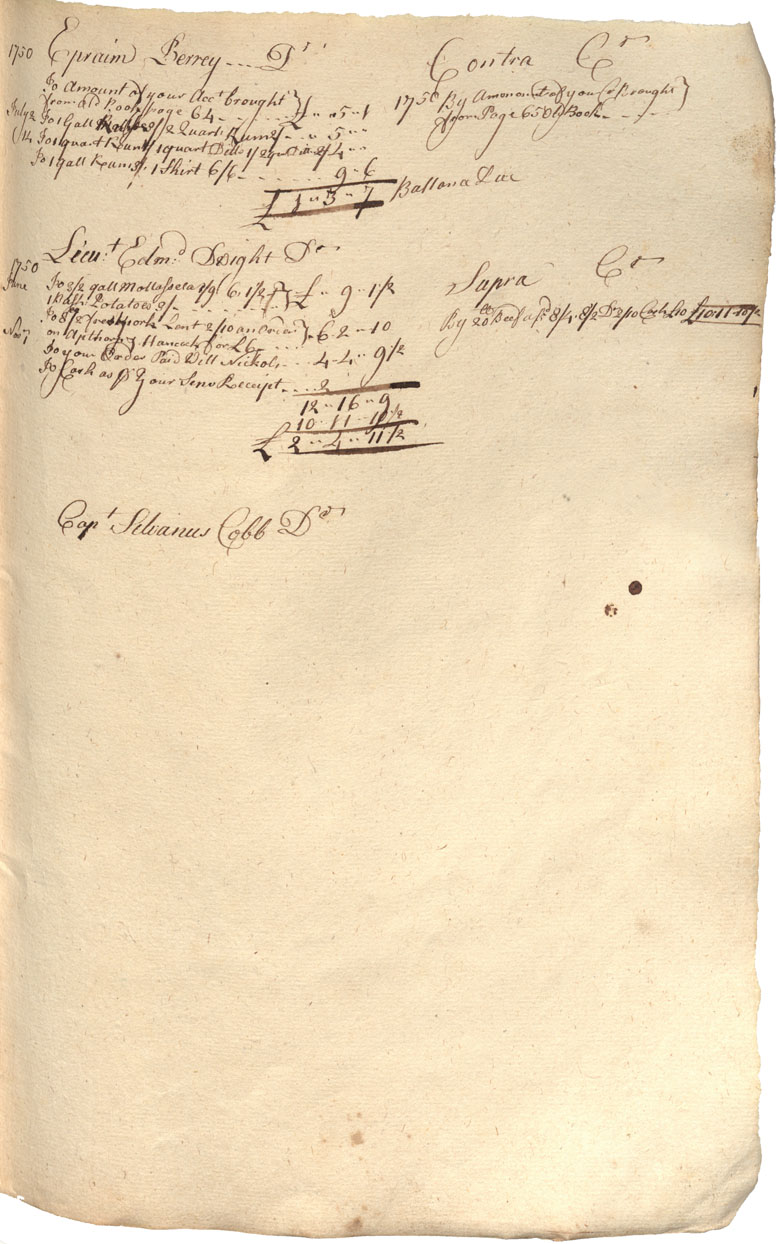 1750 Epraim Berrey Dr
To Amount of your Acct brought
from Old Book page 64 £ " 5 " 1
July 2 To 1 Gall 2 Quart Rum " 5 "
14 To 1 quart Rum 1 quart Ditto 1/2
To 1 Gall Rum 1 Shirt 6/6 9 " 6
£ 1 " 3 " 7
Contra Cr
1750 By Amomont of you Cr Brought
from Page 65 Old Book
Ballana Due
1750 Lieut Edmd Dwight Dr
June To 3 1/2 gall Mollasses a 1/9 6 " 1 1/2 £ " 9 " 1 1/2
Potatoes 3/
To fresh pork Lent 2/10 an order 6 " 2 " 10
Novr on Apthorp & Hancock for £6
To your Order Paid Will Nickols 4 " 4 " 9 1/2
To Cash as pr your Servt Receipt 2
12 " 16 " 9
10 " 11 " 10 1/2
£ 2 " 4 " 11 1/2
Supra Cr
By Beef £10 " 11 " 10 1/2
Capt Silvanus Cobb Dr